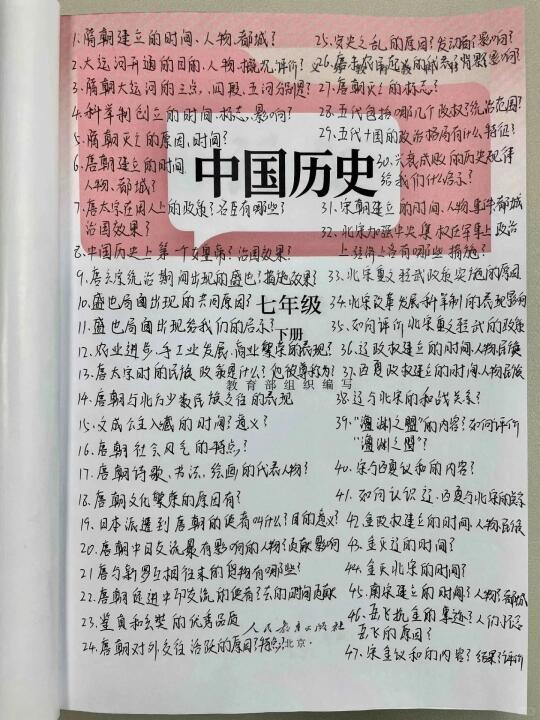 1.隋朝建立的时间、人物、都城?
2.大运河开通的目的、人物、概况、评价?
3.隋朝大运河的三点、四段、五河分别是?
4.科举制创立的时间、标志、影响?
5.隋朝灭亡的原因、时间?
6.唐朝建立的时间
人物、都城?
7.唐太宗在用人上的政策?名臣有哪些?
治国效果?
8.中国历史上第一个女皇帝?治国效果?
9.唐玄宗统治期间出现的盛世?措施效果?
10.盛世局面出现的共同原因?
11.盛世局面出现给我们的启示?
12.农业进步、手工业发展、商业繁荣的表现?
13.唐太宗时的民族政策是什么?他被尊称为?
14.唐朝与北方少数民族交往的表现
15.文成公主入藏的时间?意义?
16.唐朝社会风气的特点?
17.唐朝诗歌、书法、绘画的代表人物?
18.唐朝文化繁荣的原因有?
19.日本派遣到唐朝的使者叫什么?目的意义?
20.唐朝中日交流最有影响的人物?贡献影响
21唐与新罗互相往来的货物有哪些?
22.唐朝促进中印交流的使者?去的时间贡献
23.鉴真和玄奘的优秀品质
24.唐朝对外交往活跃的原因?特点?
中国历史
七年级
下册
教育部组织编写
人民教育出版社
·北京·
25.安史之乱的原因?发动者?影响?
27.唐朝灭亡的标志?
28.五代包括哪几个政权?统治范围?
29.五代十国的政治格局有什么特征?
30.兴衰成败的历史规律
给我们什么启示?
31.宋朝建立的时间、人物、事件、都城
32.北宋加强中央集权在军事上政治
上经济上各有哪些措施?
33.北宋重文轻武政策实施的原因
34.北宋改革发展科举制的表现影响
35.如何评价北宋重文轻武的政策
36.辽政权建立的时间、人物、民族
37.西夏政权建立的时间、人物、民族
38.辽与北宋的和战关系?
39."澶渊之盟"的内容?如何评价
"澶渊之盟"?
40.宋与西夏议和的内容?
41.如何认识辽、西夏与北宋的关系
42.金政权建立的时间、人物、民族
43.金灭辽的时间?
44.金灭北宋的时间?
45.南宋建立的时间?人物?都城
46.岳飞抗金的事迹?人们怀念
岳飞的原因?
47.宋金议和的内容?结果?评价